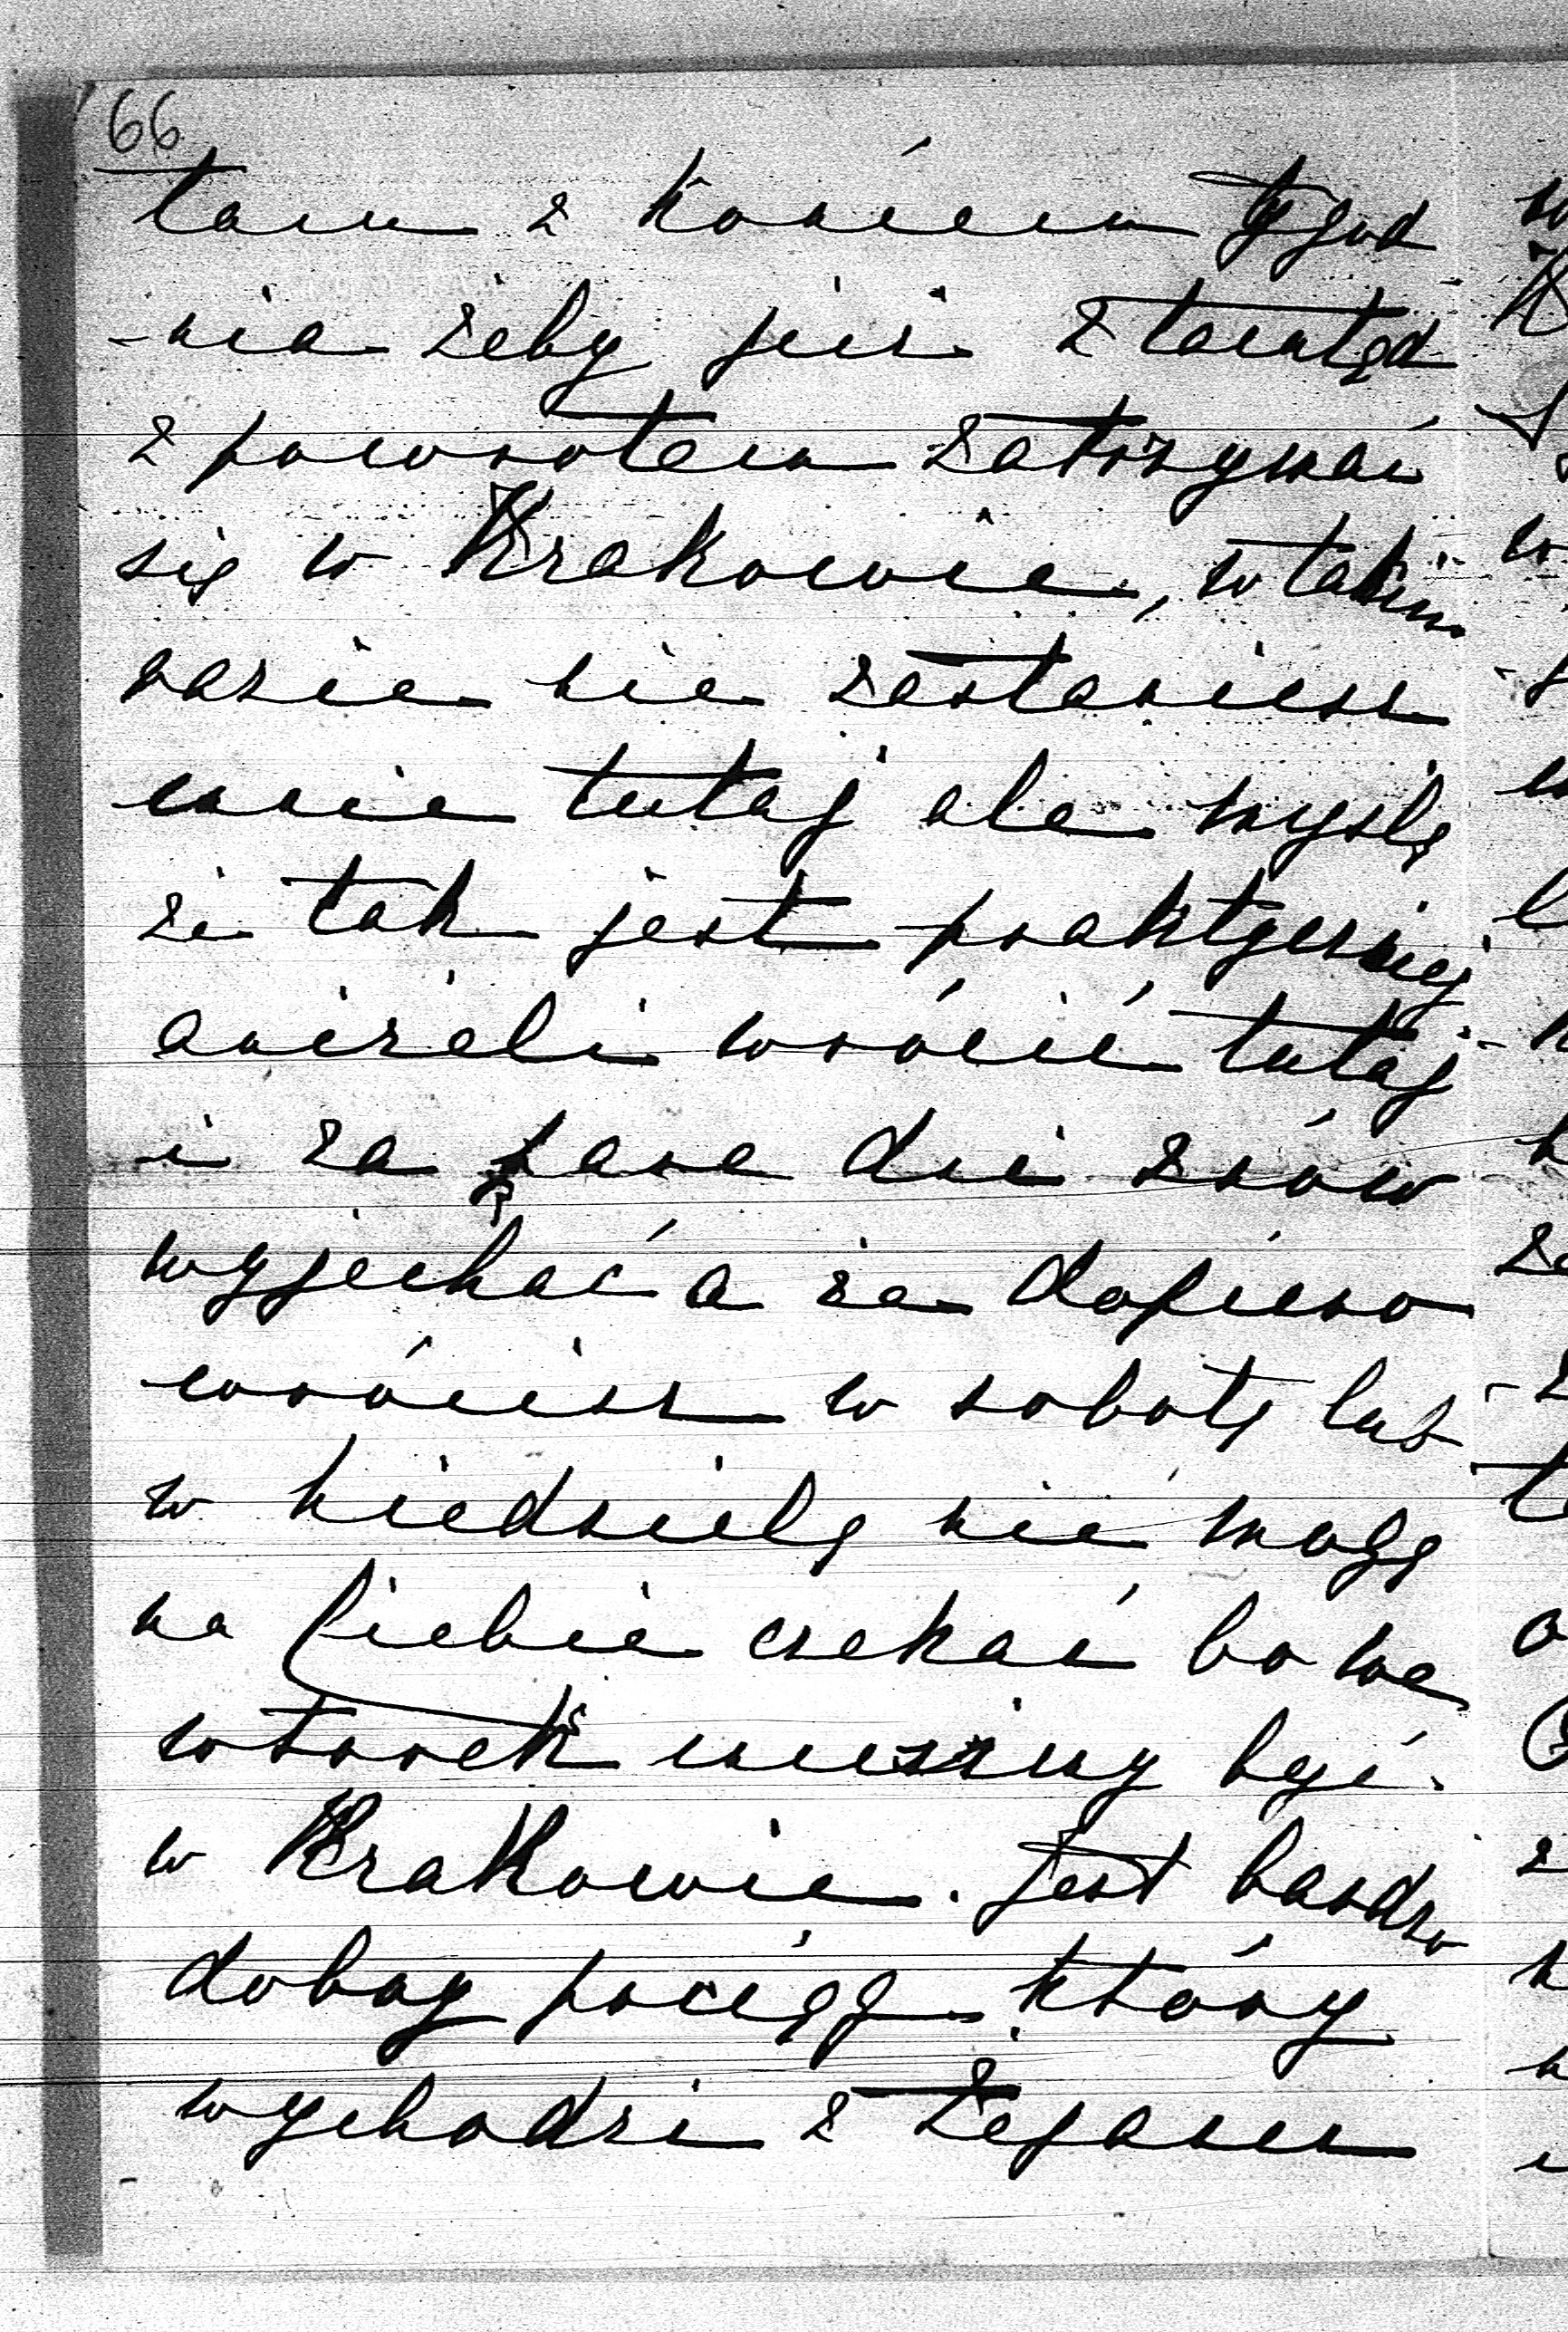 66
tam z końcem tygod
-nia żeby już z tamtąd
z powrotem zatrzymać
się w Krakowie, w takim
razie nie zastaniesz
mnie tutaj ale myslę
że tak jest praktyczniej
aniżeli wrócić tutaj
i za parę dni znów
wyjechać a że dopiero
wrócisz w sobotę lub
w niedzielę nie mogę
na Ciebie czekać bo we
wtorek musimy być
w Krakowie. Jest bardzo
dobry pociąg który
wychodzi z